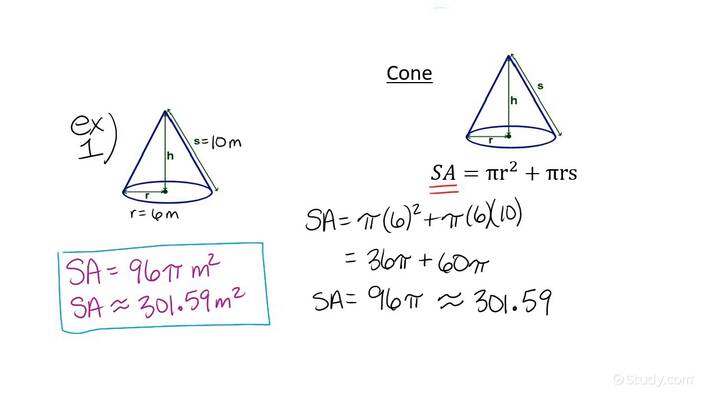 Cone
s
h
r
SA = πr² + πrs
ex
1)
s=10m
h
r
r=6m
SA= π(6)²+π(6)(10)
= 36π+60π
SA= 96π ≈ 301.59
SA= 96π m²
SA≈ 301.59m²
©Study.com